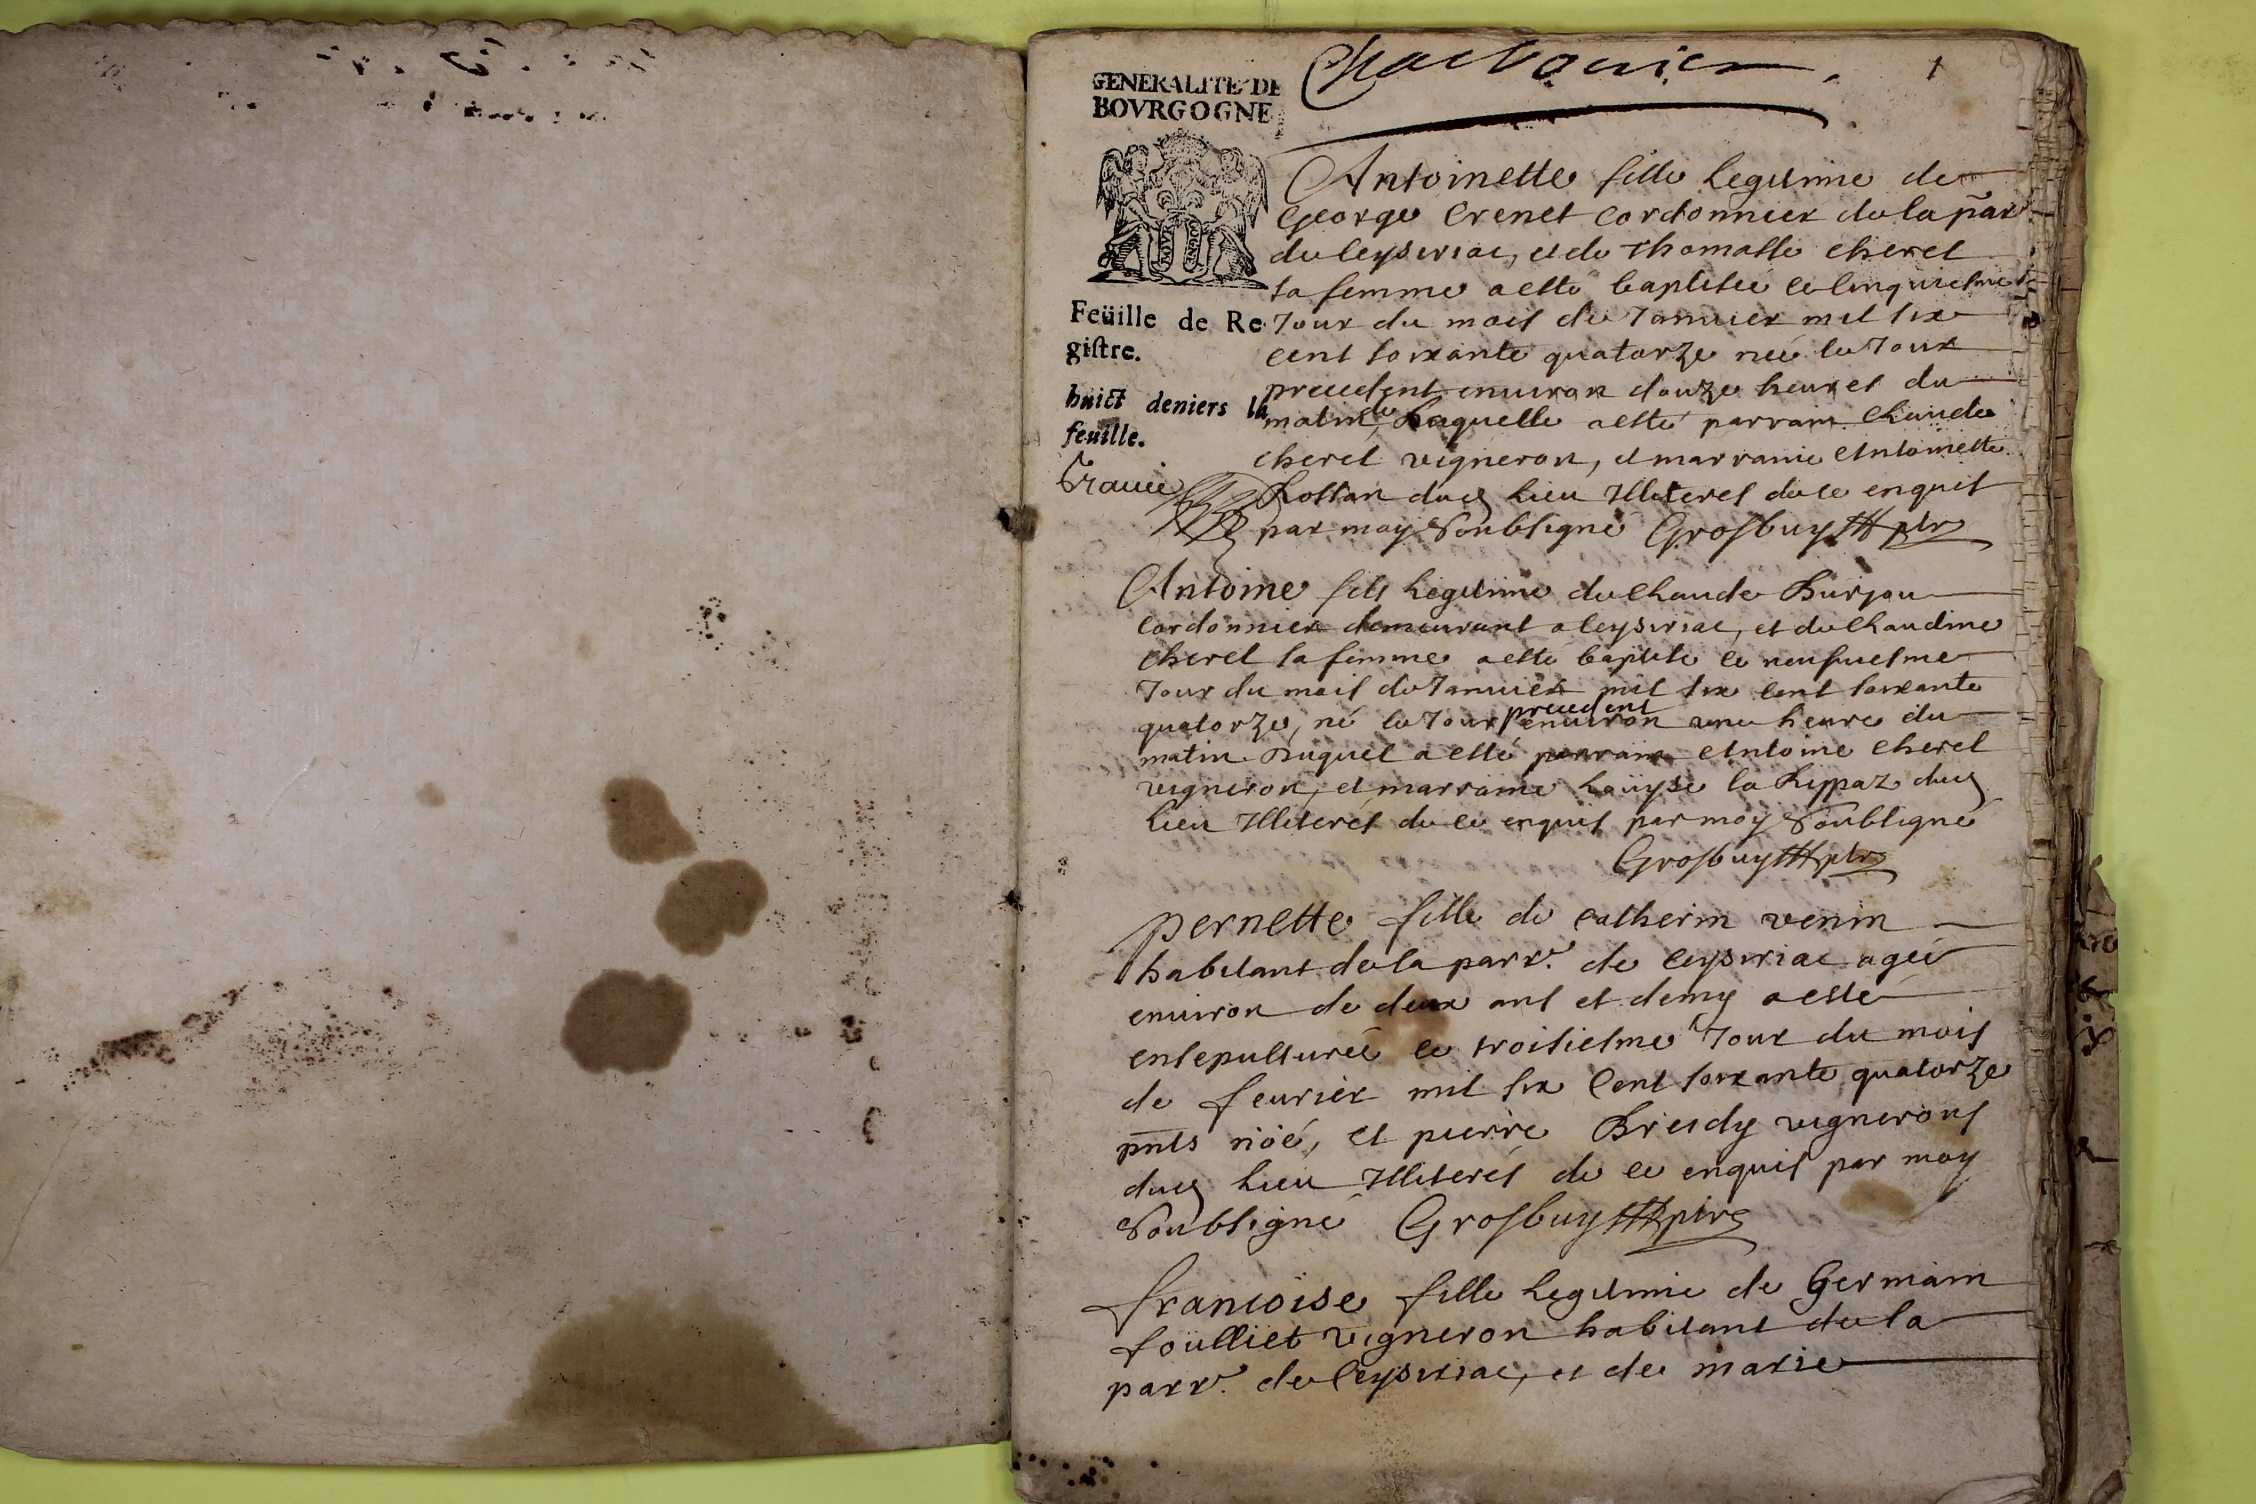 1
GENERALITE DE
BOVRGOGNE
Feüille de Re-
gistre.
huict deniers la
feuille.
Antoinette fille Legitime de
George Crenet Cordonnier de la par
de Ceyseriac, et de Thomasse Cheret
sa femme a esté baptisée le cinquiesme
Jour du mois de Januier mil six
cent soixante quatorze née le Jour
precedent enuiron douze heures du
matin, de Laquelle a esté parrain Claude
Cheret vigneron, et marraine Antoinette
Rossan dud lieu Illiterés de ce enquis
par moy Soubsigné Grosbuy ptre
Antoine fils Legitime de Claude Burjou
Cordonnier demeurant a Ceyseriac, et de Claudine
Cheret sa femme a esté baptisé le neufuiesme
Jour du mois de Januier mil six cent soixante
quatorze, né le Jour precedent enuiron une heure du
matin Duquel a esté parrain Antoine Cheret
vigneron, et marraine Loüyse la Lippaz dud
Lieu Illiterés de ce enquis par moy Soubsigné
Grosbuy ptre
Pernette fille de Catherin venin
habitant de la parr. de Ceyseriac agée
enuiron de deux ans et demy a esté
ensepulturée le troisiesme Jour du mois
de feurier mil six Cent soixante quatorze
pnts noé, et pierre Breidy vignerons
dud Lieu Illiterés de ce enquis par moy
Soubsigné Grosbuy ptre
francoise fille Legitime de Germain
foulliet vigneron habitant de la
parr. de Ceyseriac, et de marie